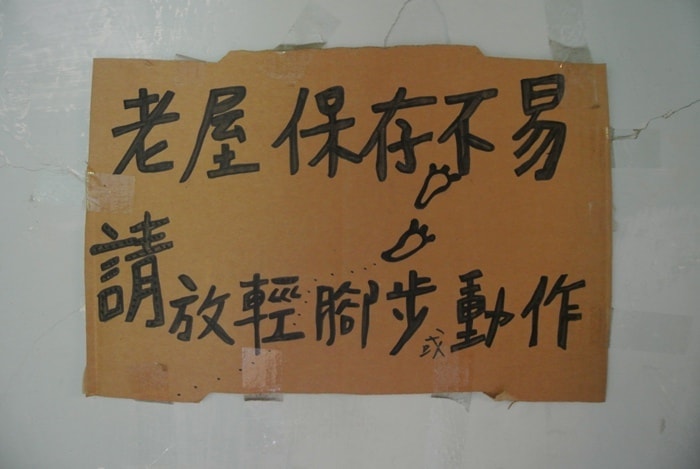 老屋保存不易
請放輕腳步或動作